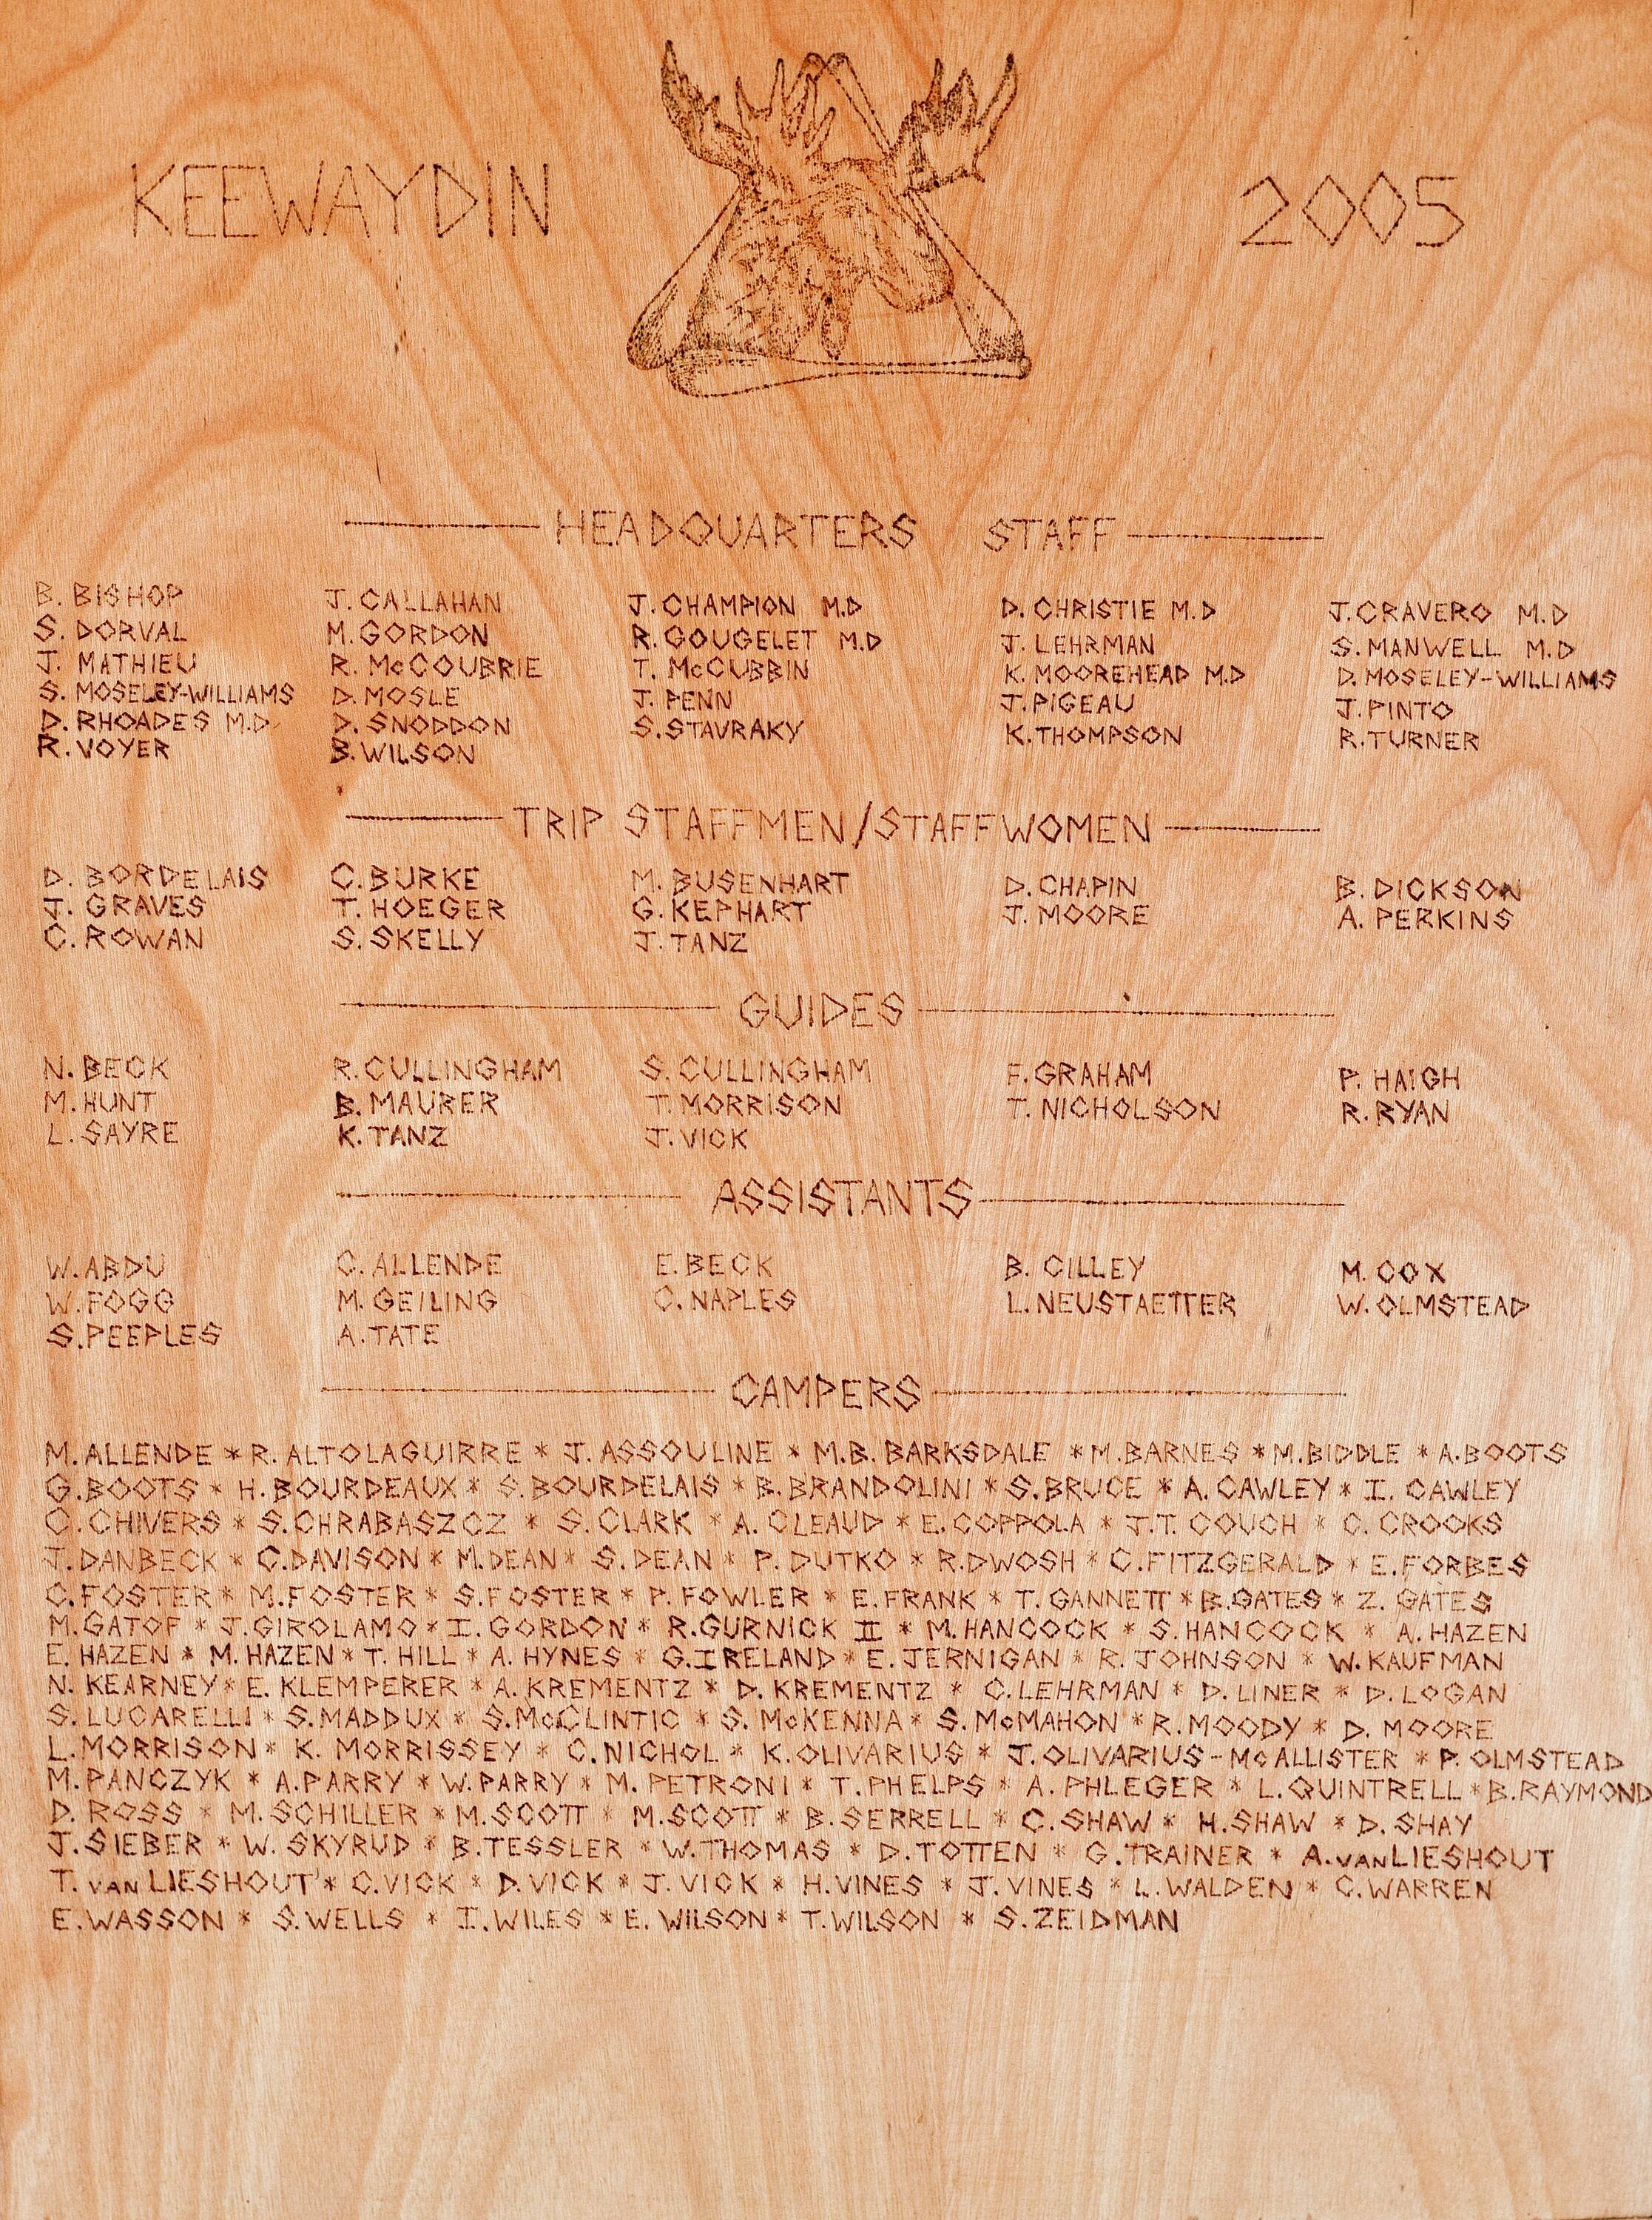 KEEWAYDIN 2005
HEADQUARTERS STAFF
B. BISHOP J. CALLAHAN J. CHAMPION M.D D. CHRISTIE M.D J. CRAVERO M.D
S. DORVAL M. GORDON R. GOUGELET M.D J. LEHRMAN S. MANWELL M.D
J. MATHIEU R. McCOUBRIE T. McCUBBIN K. MOOREHEAD M.D D. MOSELEY-WILLIAMS
S. MOSELEY-WILLIAMS D. MOSLE J. PENN J. PIGEAU J. PINTO
D. RHOADES M.D. D. SNODDON S. STAVRAKY K. THOMPSON R. TURNER
R. VOYER B. WILSON
TRIP STAFFMEN/STAFFWOMEN
D. BORDELAIS C. BURKE M. BUSENHART D. CHAPIN B. DICKSON
J. GRAVES T. HOEGER G. KEPHART J. MOORE A. PERKINS
C. ROWAN S. SKELLY J. TANZ
GUIDES
N. BECK R. CULLINGHAM S. CULLINGHAM F. GRAHAM P. HAIGH
M. HUNT B. MAURER T. MORRISON T. NICHOLSON R. RYAN
L. SAYRE K. TANZ J. VICK
ASSISTANTS
W. ABDU C. ALLENDE E. BECK B. CILLEY M. COX
W. FOGG M. GEILING C. NAPLES L. NEUSTAETTER W. OLMSTEAD
S. PEEPLES A. TATE
CAMPERS
M. ALLENDE * R. ALTOLAGUIRRE * J. ASSOULINE * M.B. BARKSDALE * M. BARNES * M. BIDDLE * A. BOOTS
G. BOOTS * H. BOURDEAUX * S. BOURDELAIS * B. BRANDOLINI * S. BRUCE * A. CAWLEY * I. CAWLEY
C. CHIVERS * S. CHRABASZCZ * S. CLARK * A. CLEAUD * E. COPPOLA * J.T. COUCH * C. CROOKS
J. DANBECK * C. DAVISON * M. DEAN * S. DEAN * P. DUTKO * R. DWOSH * C. FITZGERALD * E. FORBES
C. FOSTER * M. FOSTER * S. FOSTER * P. FOWLER * E. FRANK * T. GANNETT * B. GATES * Z. GATES
M. GATOF * J. GIROLAMO * I. GORDON * R. GURNICK II * M. HANCOCK * S. HANCOCK * A. HAZEN
E. HAZEN * M. HAZEN * T. HILL * A. HYNES * G. IRELAND * E. JERNIGAN * R. JOHNSON * W. KAUFMAN
N. KEARNEY * E. KLEMPERER * A. KREMENTZ * D. KREMENTZ * C. LEHRMAN * D. LINER * D. LOGAN
S. LUCARELLI * S. MADDUX * S. McCLINTIC * S. McKENNA * S. McMAHON * R. MOODY * D. MOORE
L. MORRISON * K. MORRISSEY * C. NICHOL * K. OLIVARIUS * J. OLIVARIUS-McALLISTER * P. OLMSTEAD
M. PANCZYK * A. PARRY * W. PARRY * M. PETRONI * T. PHELPS * A. PHLEGER * L. QUINTRELL * B. RAYMOND
D. ROSS * M. SCHILLER * M. SCOTT * M. SCOTT * B. SERRELL * C. SHAW * H. SHAW * D. SHAY
J. SIEBER * W. SKYRUD * B. TESSLER * W. THOMAS * D. TOTTEN * G. TRAINER * A. vanLIESHOUT
T. vanLIESHOUT * C. VICK * D. VICK * J. VICK * H. VINES * J. VINES * L. WALDEN * C. WARREN
E. WASSON * S. WELLS * I. WILES * E. WILSON * T. WILSON * S. ZEIDMAN